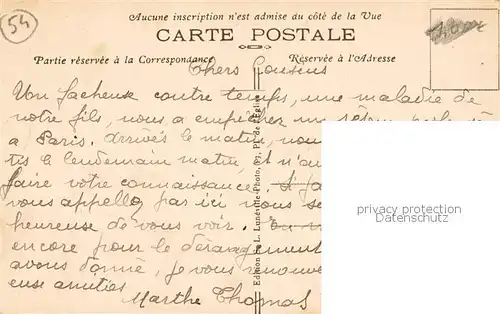 54
Aucune inscription n'est admise du côté de la Vue
CARTE POSTALE
Partie réservée à la Correspondance
Réservée à l'Adresse
Chers Cousins
Un facheuse contre temps, une maladie de
notre fils, nous a empêcher
a Paris. arrivés le matin, nous
tis le lendemain matin, et n'av
faire votre connaissance.
vous appellez par ici vous se
heureuse de vous voir.
encore pour le dérangement
avons donné, je vous renouv
euse amities
Marthe Thomas
Edition de L. Lunéville-Photo, 97, Pl. de l'Eglise
privacy protection
www.ansichtskarten-center.de